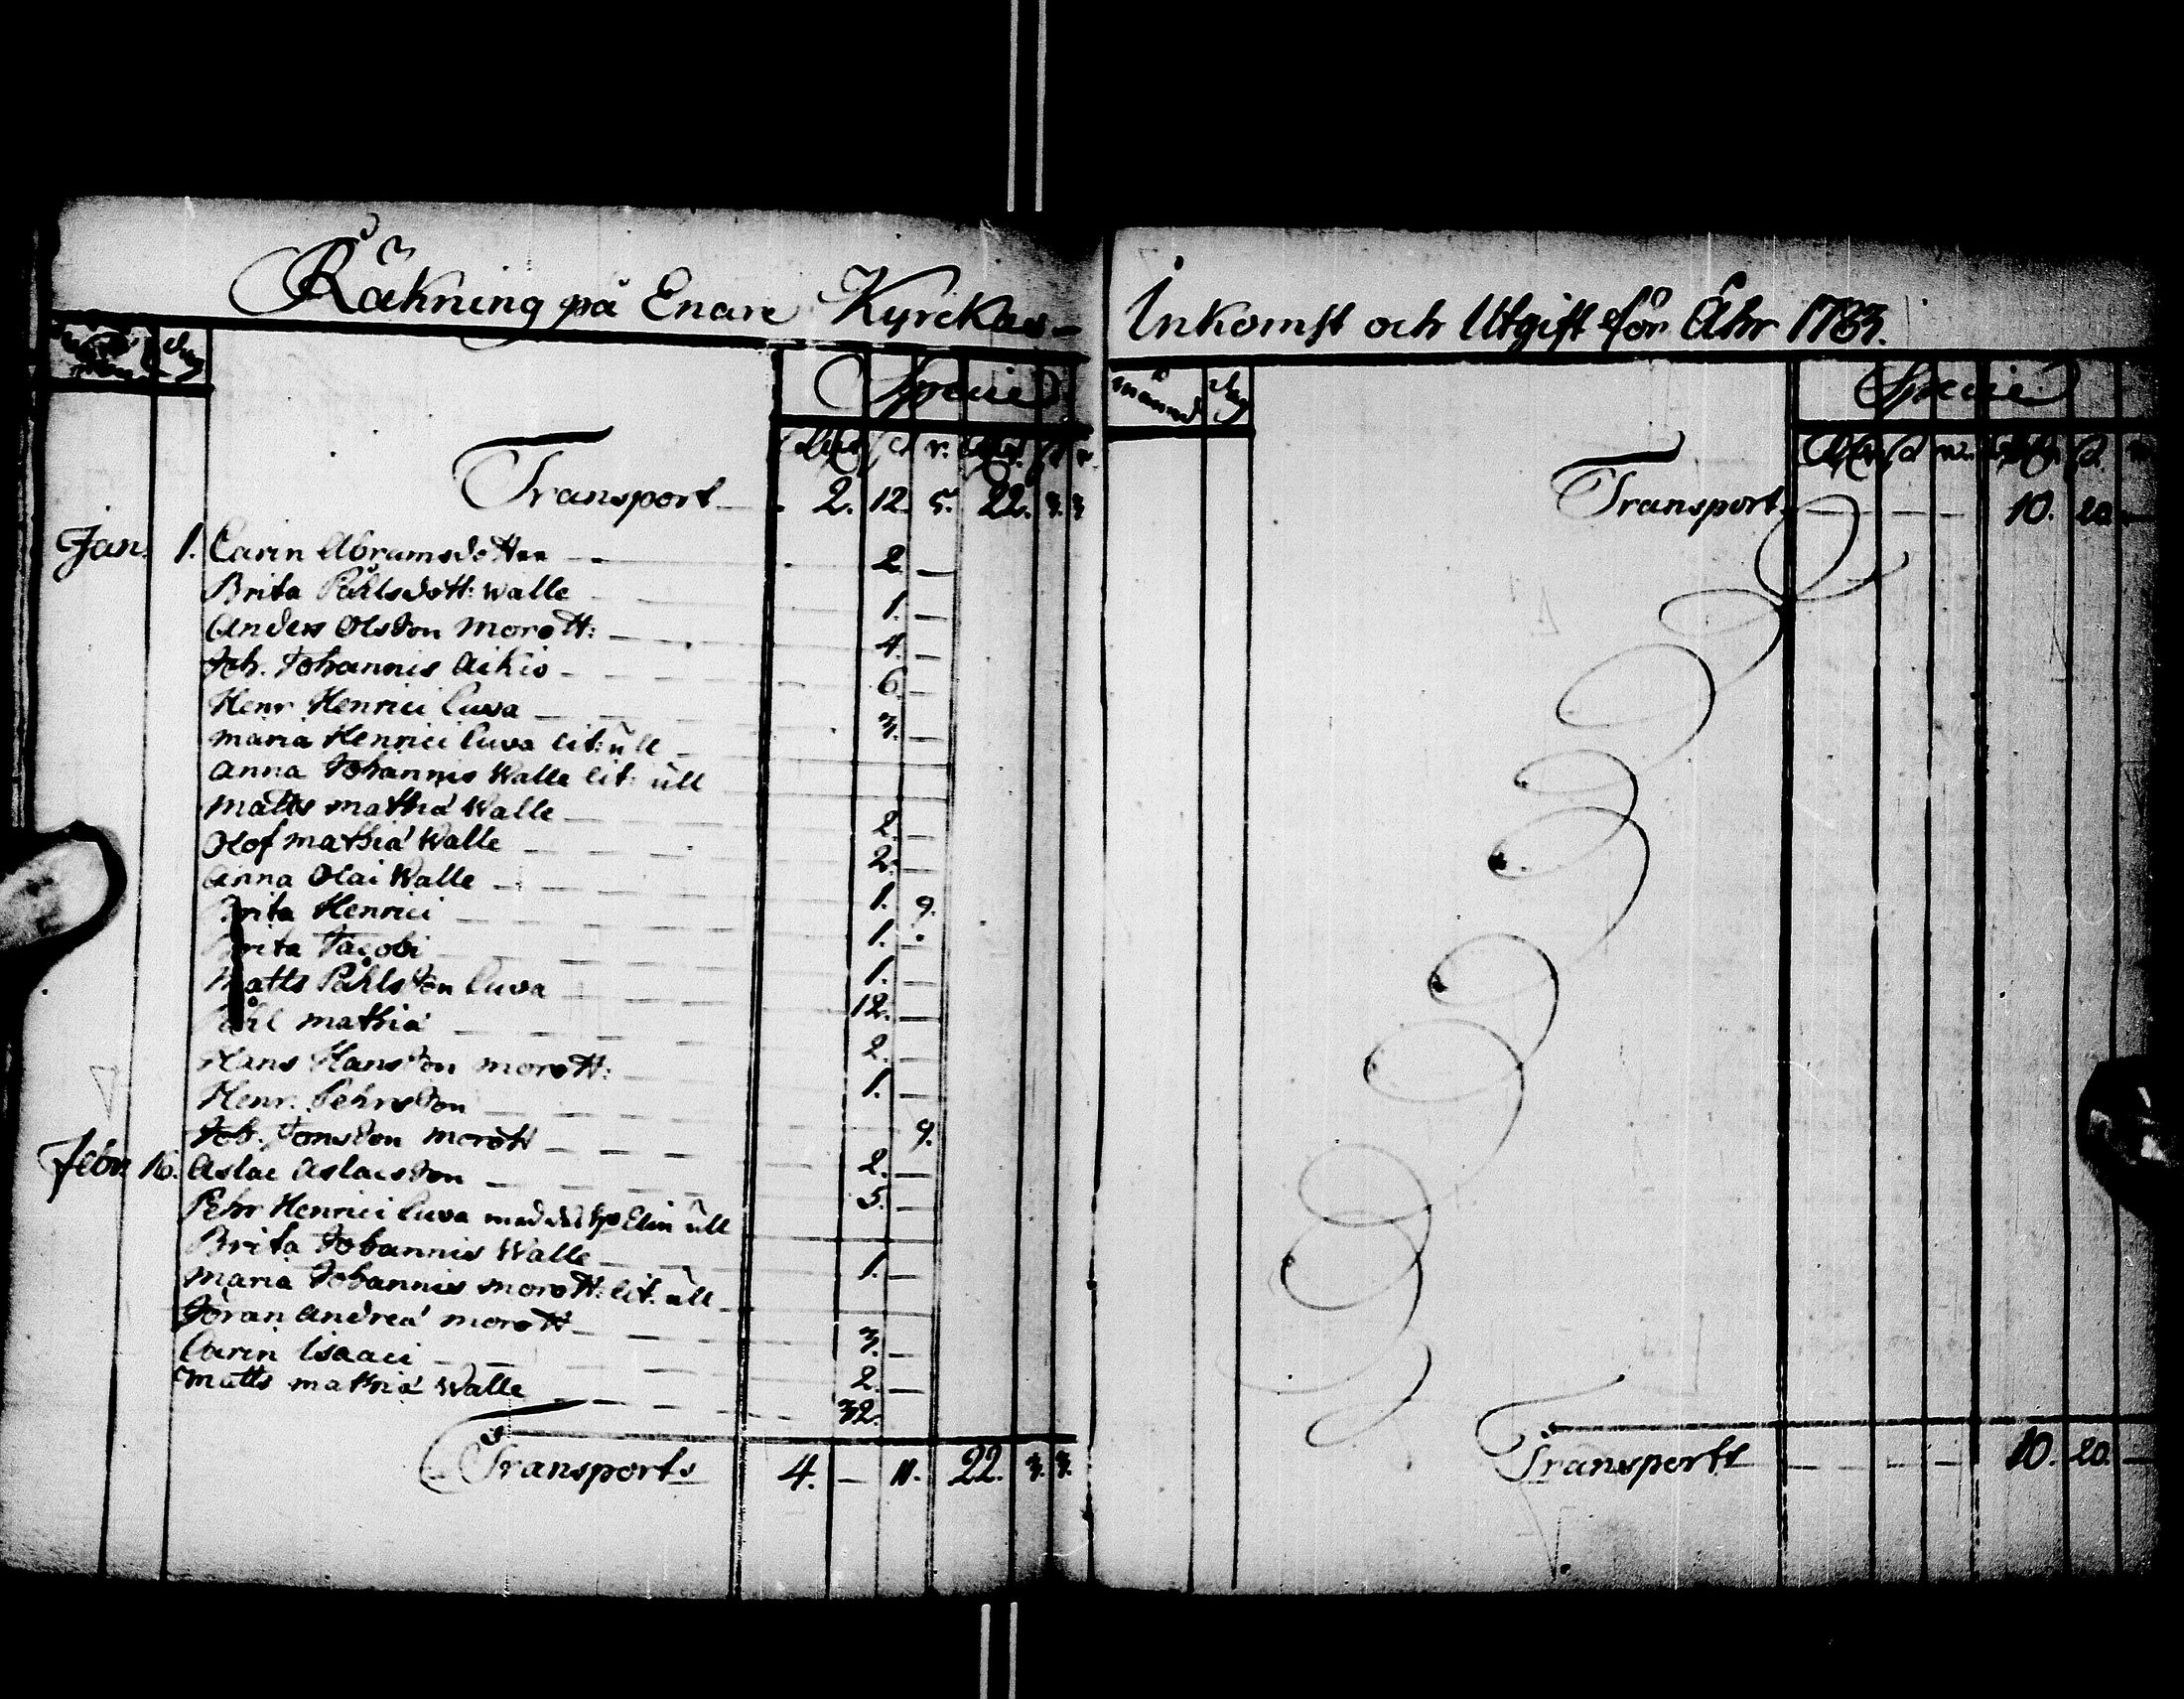 Räkning på Enare Kyrckas
månad dag
Specie
d. r. s.
Transport 2. 12. 5. 22. 3. 3
Jan. 1. Carin Abramsdotter 2. —
Brita Påhlsdott: Walle 1. —
Anders Olsson Morott: 4. —
Joh. Johannis Aikio 6. —
Henr Henrici Cuva 3. —
Maria Henrici Cuva lit: ull
Anna Johannis Walle lit: ull
Matts Mathiä Walle 2. —
Olof Mathiä Walle 2. —
Anna Olai Walle 1. 9.
Brita Henrici 1. —
Brita Jacobi 1. —
Matts Påhlsson Cuva 12. —
Påhl Mathiä 2. —
Hans Hansson Morott: 1. —
Henr. Pehrsson 9.
Joh. Jonsson Morott 2. —
Febr. 16. Aslac Aslacsson 5. —
Pehr Henrici Cuva med Elin ull
Brita Johannis Walle 1. —
Maria Johannis Morott: lit: ull
Jöran Andreä Morott 3. —
Carin Isaaci 2. —
Matts Mathiä Walle 32.
Transports 4. — 11. 22. 3. 3.
Inkomst och Utgift för Åhr 1783.
månad dag
Specie
Transport — — — 10. 20. —
Transports — — — 10. 20. —